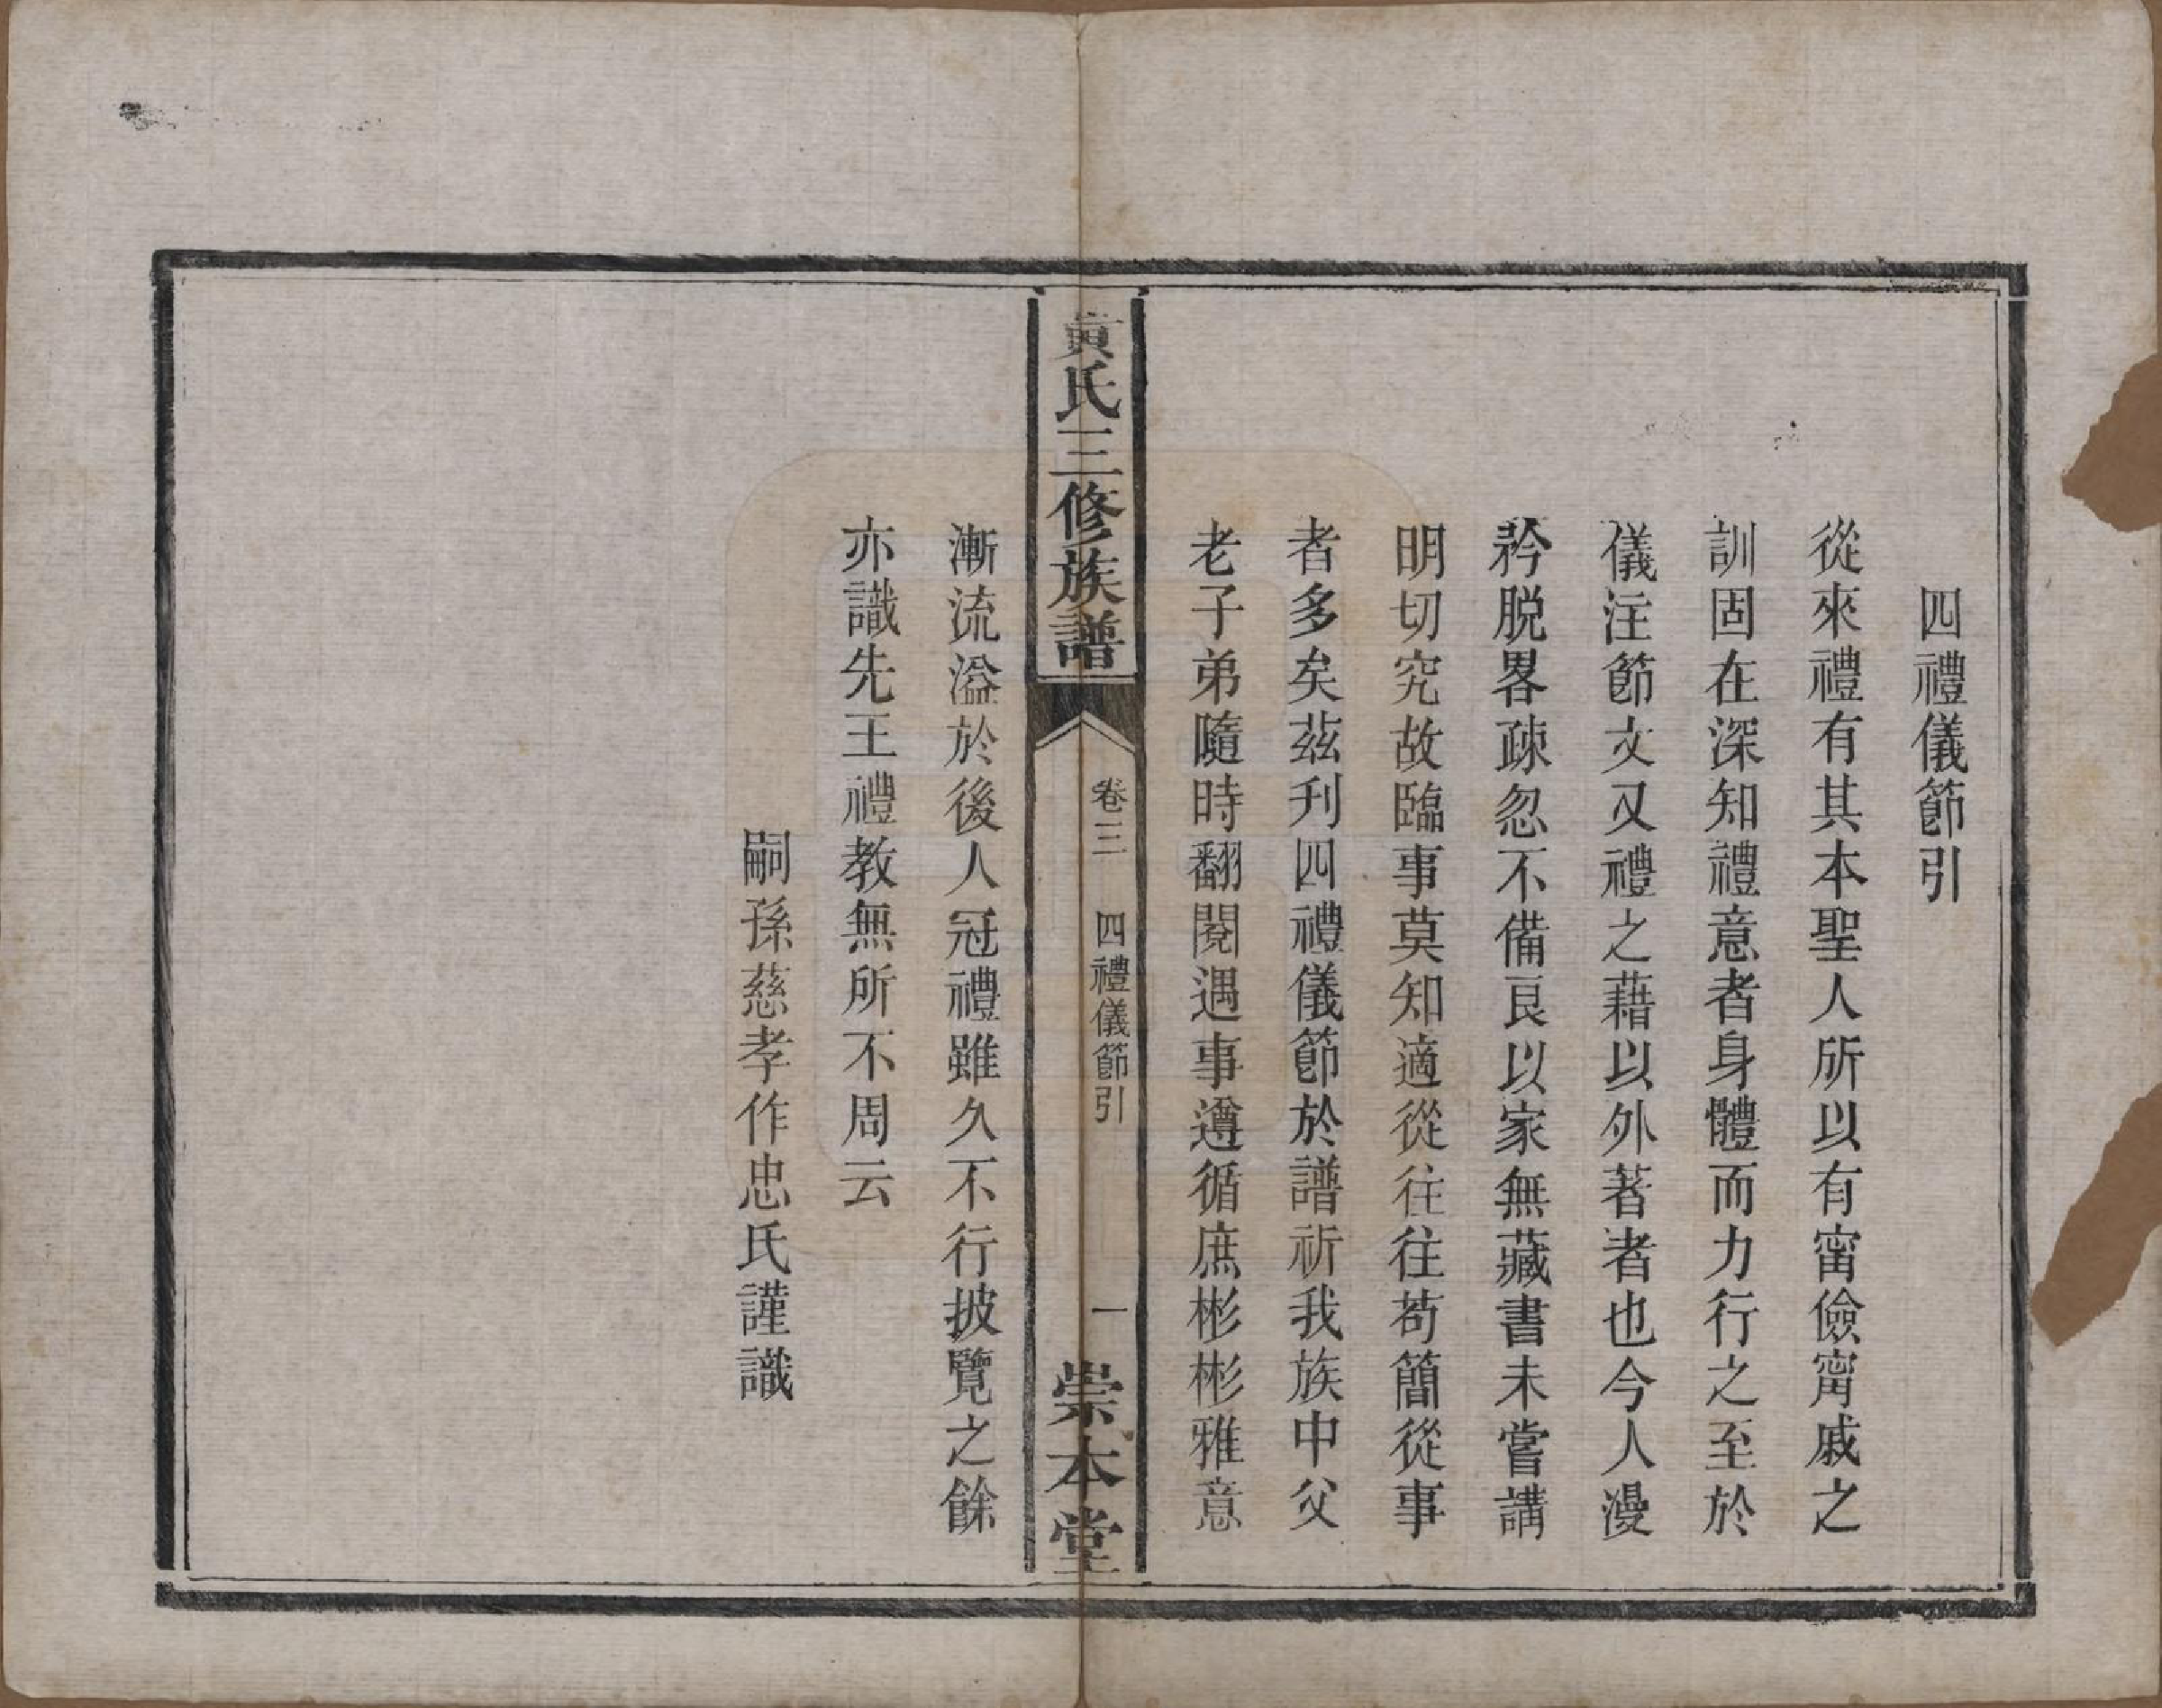 四禮儀節引
從來禮有其本聖人所以有甯儉甯戚之
訓固在深知禮意者身體而力行之至於
儀注節文又禮之藉以外著者也今人漫
矜脱畧疎忽不備良以家無藏書未嘗講
明切究故臨事莫知適從往往苟簡從事
者多矣茲刋四禮儀節於譜祈我族中父
老子弟隨時翻閱遇事遵循庶彬彬雅意
黃氏三修族譜
卷三
四禮儀節引
一
崇本堂
漸流溢於後人冠禮雖久不行披覽之餘
亦識先王禮教無所不周云
嗣孫慈孝作忠氏謹識